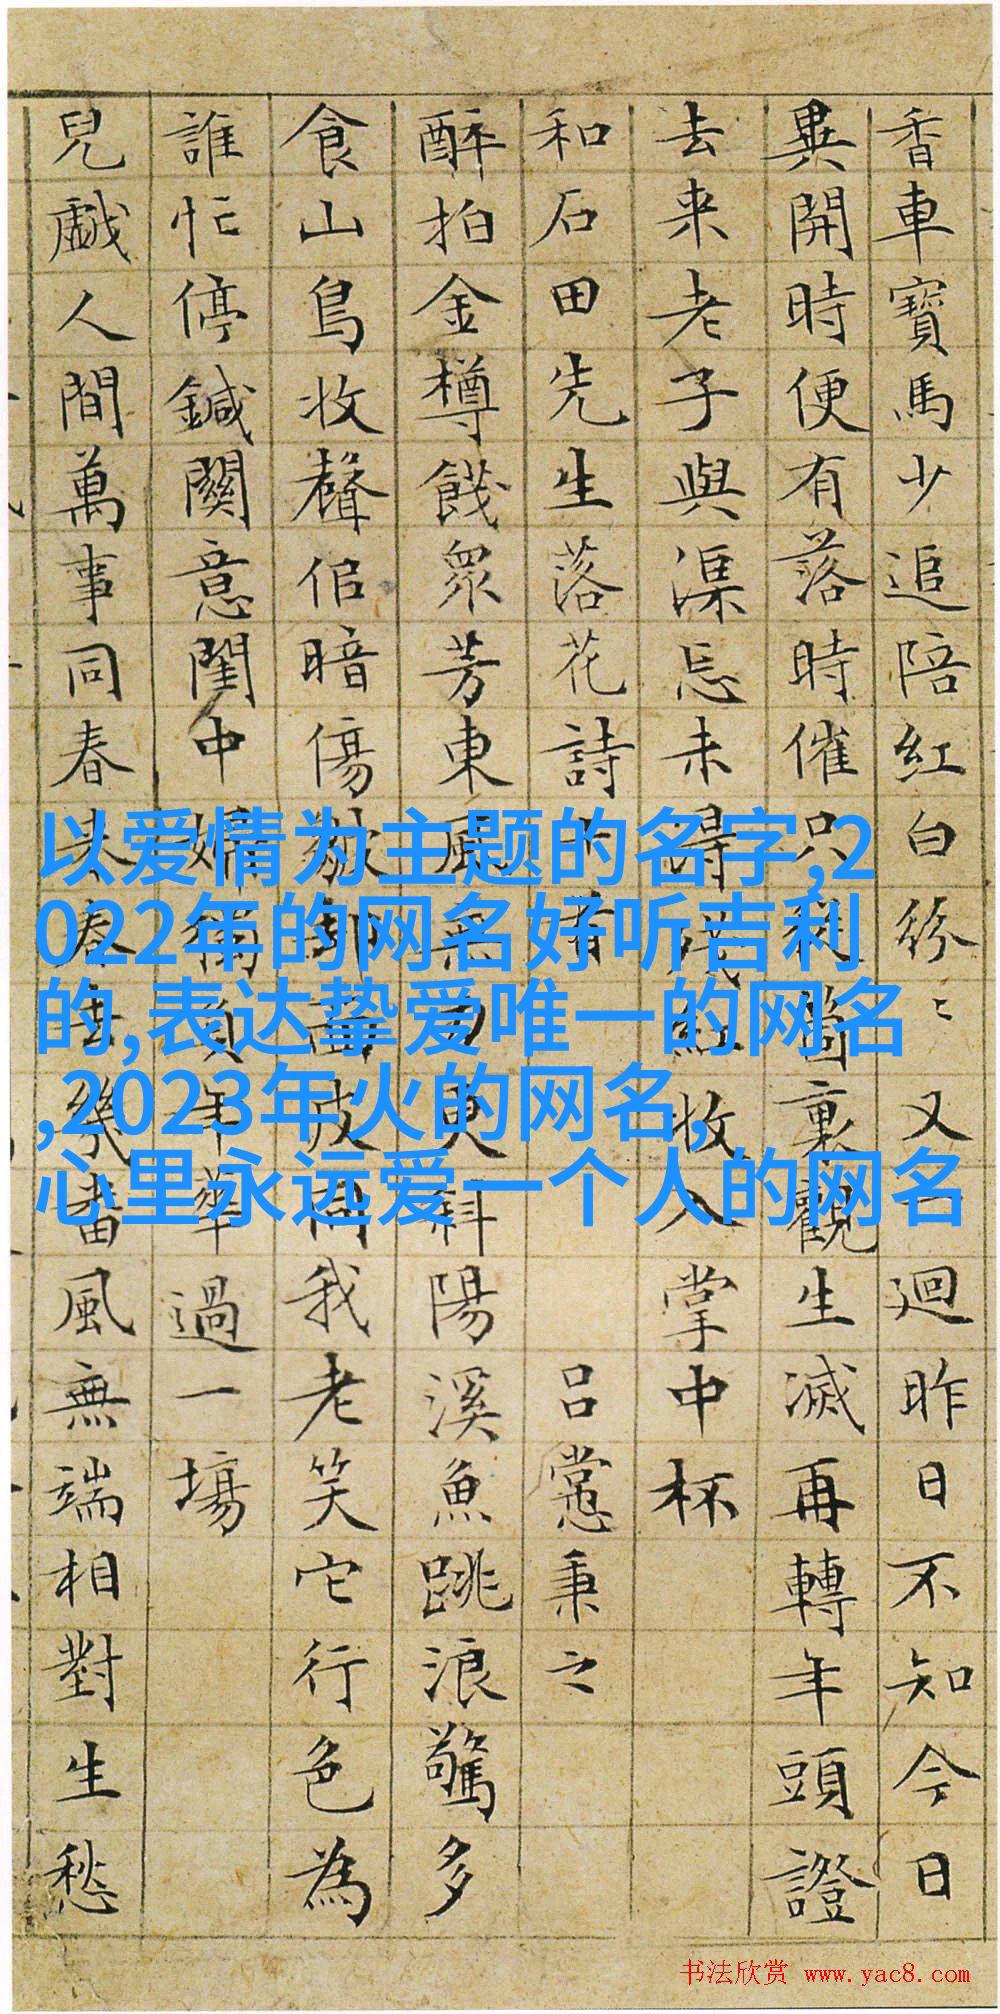 香車寶馬少追陪紅白紛〻又一迴昨日不知今日
異開時便有落時催只從箇裏觀生滅再轉年頭證
去来老子與渠忘未得殘紅收入掌中杯
和石田先生落花詩十首 呂㦂秉之
醉拍金樽餞眾芳東風無力更斜陽溪魚跳浪驚多
食山鳥收聲佀暗傷皺卻面皮同我老笑它行色為
誰忙停鍼關意閨中婦負年華過一場
兒戲人間萬事同春来春去幾番風無端相對生愁
以爱情为主题的名字,2
022年的网名好听吉利
的,表达挚爱唯一的网名
,2023年火的网名,
心里永远爱一个人的网名
书法欣赏 www.yac8.com